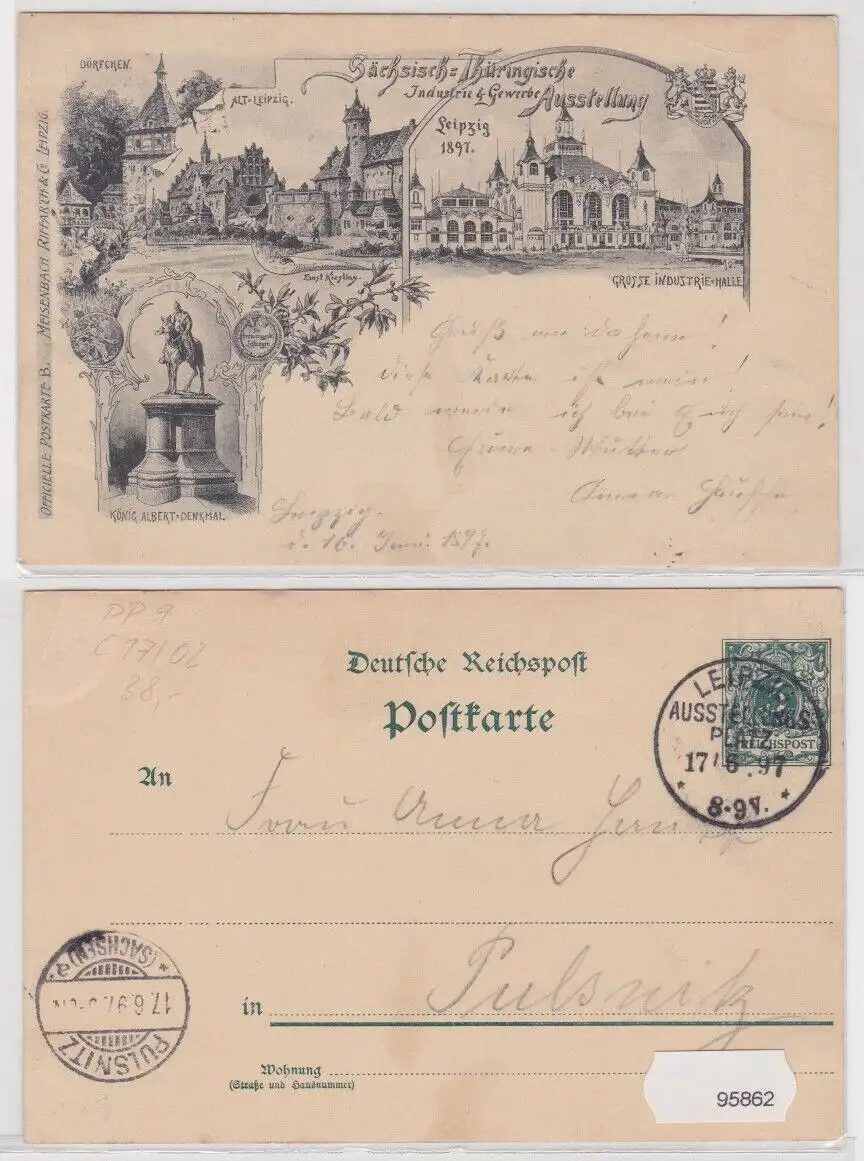 DÖRFCHEN.
ALT-LEIPZIG.
Sächsisch-Thüringische
Industrie & Gewerbe Ausstellung
Leipzig
1897.
Ernst Kiesling.
GROSSE INDUSTRIE-HALLE
OFFICIELLE POSTKARTE B. MEISENBACH RIFFARTH & Co LEIPZIG.
KÖNIG ALBERT-DENKMAL
Gruß an daheim!
diese Karte ist mein!
Bald werde ich bei Euch sein!
Euere Mutter
Anna
Leipzig.
d. 16. Juni 1897.
PP 9
C 17/02
38,-
Deutsche Reichspost
Postkarte
REICHSPOST
LEIPZIG
AUSSTELLUNGS-
PLATZ
17/6.97
8-9V.
An
Frau Anna
(SACHSEN) a.
17.6.97
PULSNITZ
in Pulsnitz
Wohnung
(Straße und Hausnummer)
95862